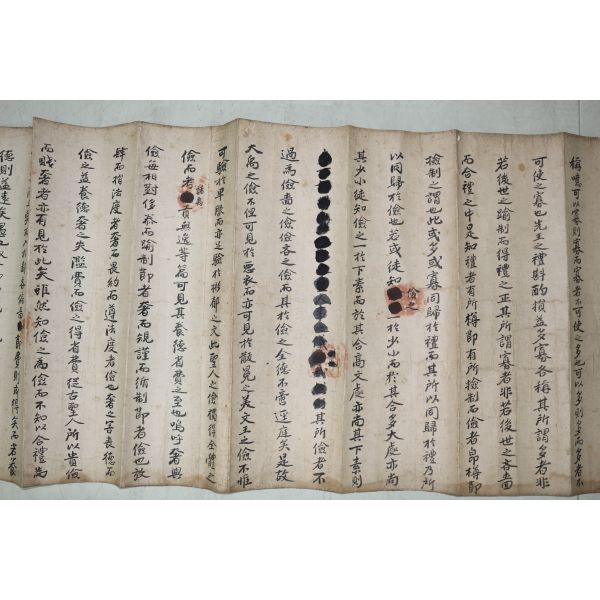 稱噫可以寡則寡而寡者不可使之多也可以多則多而多者不
可使之寡也先王之禮斟酌損益多寡各稱其所謂多者非
若後世之踰制而得禮之正其所謂寡者非若後世之吝嗇
而合禮之中是知禮者有所稱節有所檢制而儉者卽稱節
檢制之謂也此或多或寡同歸於禮而其所以同歸於禮乃所
以同歸於儉也若或徒知儉之一於少小而於其合多大處亦尚
其少小徒知儉之一於下素而於其合高文處亦尚其下素則
其所儉者不
過爲儉嗇之儉儉吝之儉而其於儉之全德不啻逕庭矣是故
大禹之儉不但可見於惡衣而亦可見於黻冕之美文王之儉不惟
可驗於卑服而亦足驗於彬郁之文此聖人之儉獨得全體之
儉而者諸貢與逸等篇可見其養德省費之至也嗚呼奢與
儉每相對侈泰而踰制節者奢而規謹而循制節者儉也放
肆而捨法度者奢而畏約而遵法度者儉也奢之害喪德而
儉之益養德奢之失濫費而儉之得省費從古聖人所以貴儉
而賤奢者亦有見於此矣雖然知儉之爲儉而不知以合禮爲
節費則或得矣而若奢
德則益遠矣